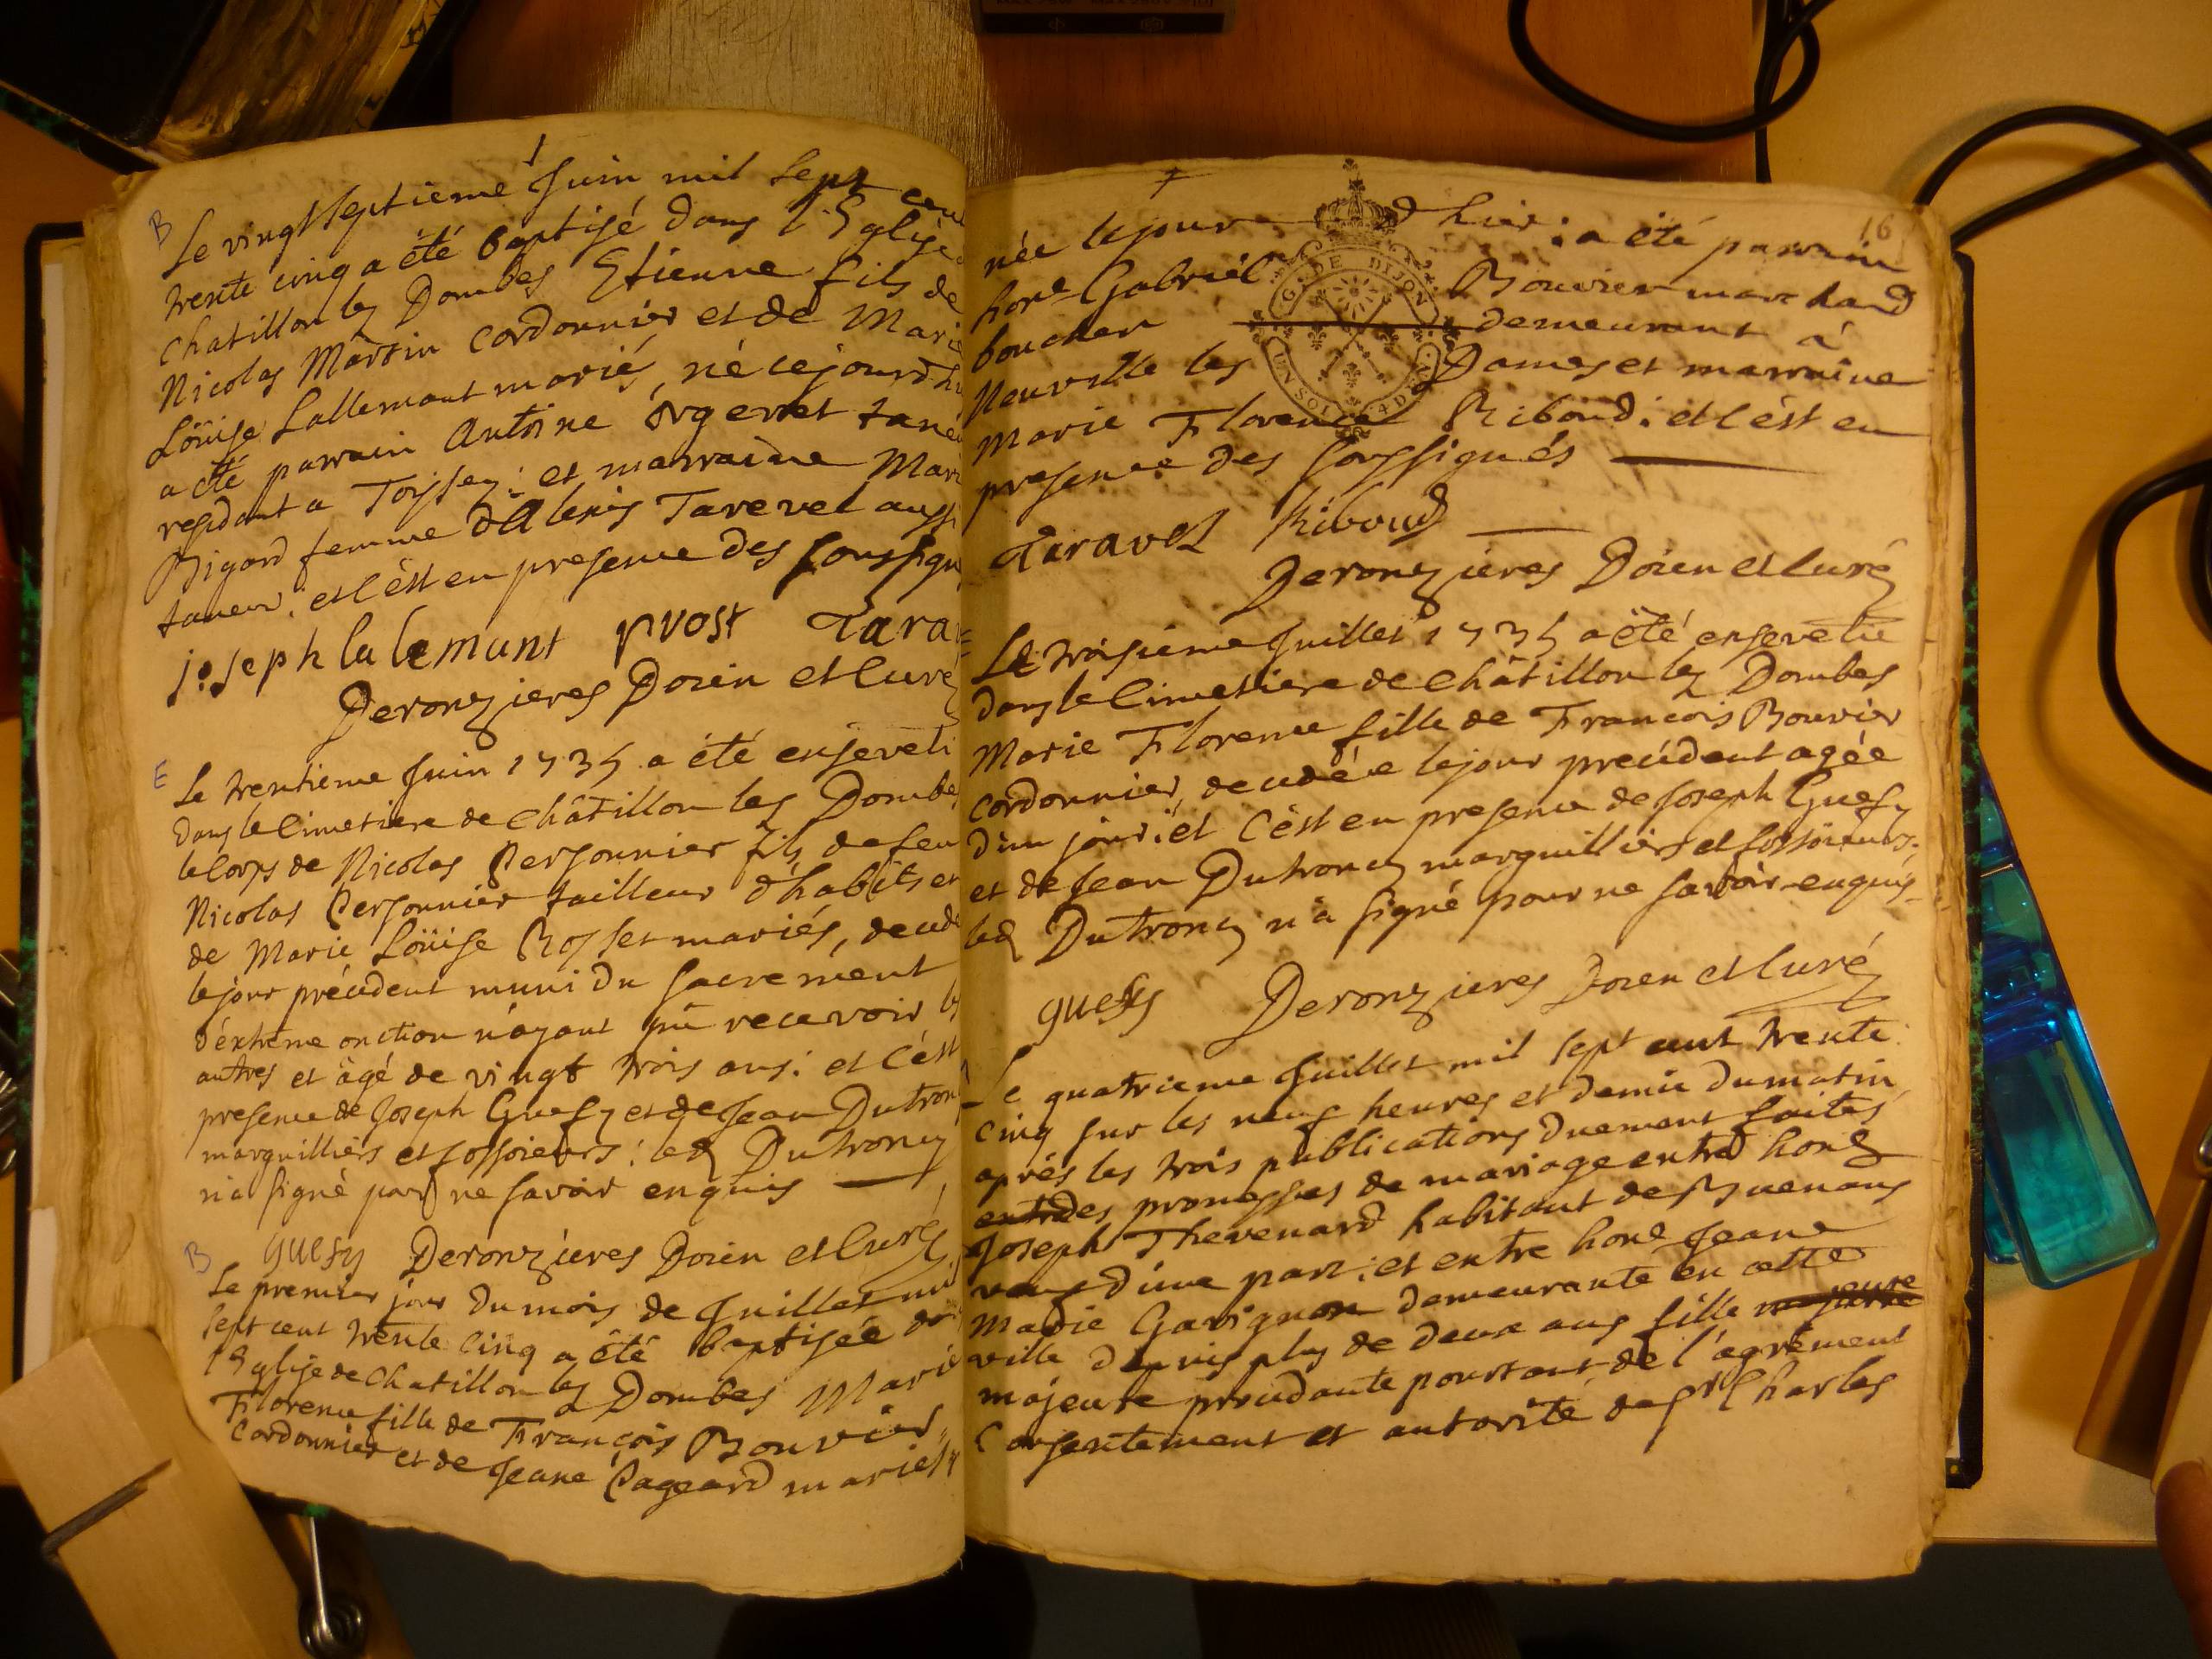 B
Le vingtseptieme Juin mil sept cent
trente cinq a été baptisé dans l'Eglise
Chatillon les Dombes Etienne fils de
Nicolas Martin Cordonnier et de Marie
Loüise Lallemant mariés, né cejourd'hu
a été parrain Antoine Orgerret tane
residant a Toissey : et marraine Mari
Bigard femme d'Alexis Tarevel aussi
taneur : et c'èst en presence des soussigné
joseph lalemant pvost Tara=
Deronzieres Doïen et Curé
E
Le trentieme Juin 1735 a été enseveli
dans le Cimetiere de Châtillon les Dombes
le Corps de Nicolas Personnier fils de feu
Nicolas Personnier tailleur d'habits et
de Marie Loüise Rosset mariés, decedé
le jour précédent muni du sacrement
d'éxtrême onction n'ayant pû recevoir les
autres et âgé de vingt trois ans : et c'èst
presence de Joseph Guefy et de Jean Dutron
marguilliers et fossoïeurs : led Dutroncy
n'a signé pour ne savoir enquis
guefy Deronzieres Doïen et Curé
B
Le premier jour du mois de Juillet mil
sept cent trente cinq a été baptisée da
l'Eglise de Chatillon les Dombes Marie
Florence fille de François Bouvier
Cordonnier et de Jeane Pageard mariés
16
née le jour d'hier : a été parrain
hone Gabriel Bouvier marchand
boucher demeurant à
Neuville les Dames et marraine
Marie Florence Riboud : et c'èst en
presence des soussignés
Taravel Riboud
Deronzieres Doïen et Curé
G. DE DIJON
UN SOL 4 DEN.
Le troisieme Juillet 1735 a été ensevelie
dans le Cimetiere de Châtillon les Dombes
Marie Florence fille de François Bouvier
Cordonnier, decedée le jour precédent agée
d'un jour : et c'èst en presence de Joseph Guefy
et de Jean Dutroncy marguilliers et fossoïeurs :
led Dutroncy n'a signé pour ne savoir enquis
guefy Deronzieres Doïen et Curé
Le quatrieme Juillet mil sept cent trente
cinq sur les neuf heures et demie du matin
après les trois publications duement faites
entr des promesses de mariage entre hone
Joseph Thevenard habitant de Buenans
veuf d'une part : et entre hone Jeane
Marie Gavignon demeurante en cette
ville depuis plus de deux ans fille majeure
majeure procedante pourtant de l'agrément
Consentement et autorité de Sr Charles